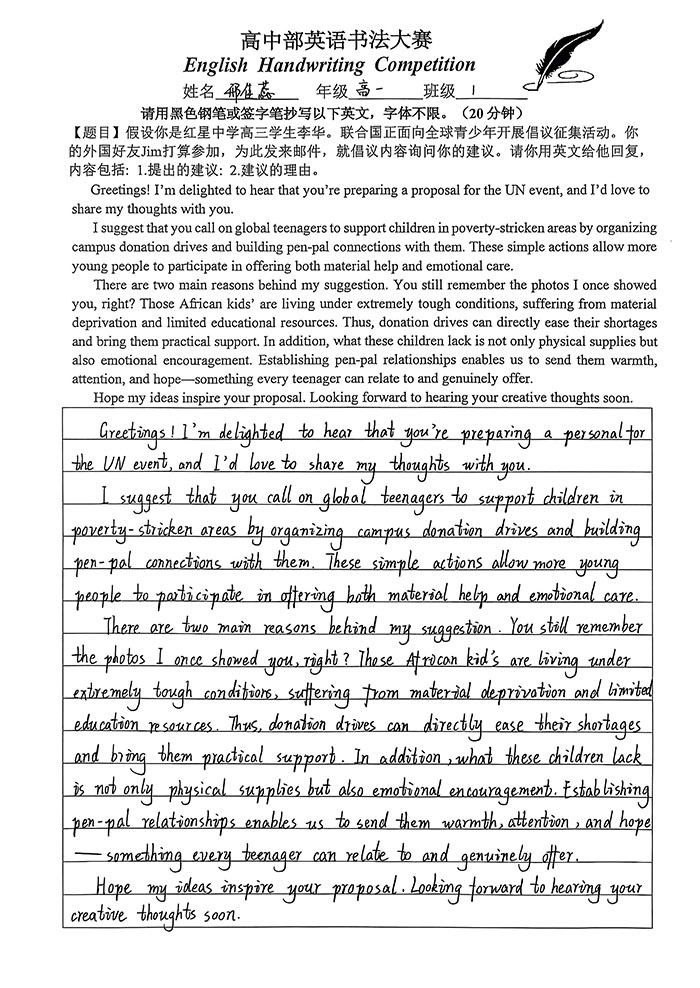 高中部英语书法大赛
English Handwriting Competition
姓名 邢佳蕊 年级 高一 班级 1
请用黑色钢笔或签字笔抄写以下英文，字体不限。（20分钟）
【题目】假设你是红星中学高三学生李华。联合国正面向全球青少年开展倡议征集活动。你
的外国好友Jim打算参加，为此发来邮件，就倡议内容询问你的建议。请你用英文给他回复，
内容包括：1.提出的建议；2.建议的理由。
Greetings! I'm delighted to hear that you're preparing a proposal for the UN event, and I'd love to
share my thoughts with you.
I suggest that you call on global teenagers to support children in poverty-stricken areas by organizing
campus donation drives and building pen-pal connections with them. These simple actions allow more
young people to participate in offering both material help and emotional care.
There are two main reasons behind my suggestion. You still remember the photos I once showed
you, right? Those African kids' are living under extremely tough conditions, suffering from material
deprivation and limited educational resources. Thus, donation drives can directly ease their shortages
and bring them practical support. In addition, what these children lack is not only physical supplies but
also emotional encouragement. Establishing pen-pal relationships enables us to send them warmth,
attention, and hope—something every teenager can relate to and genuinely offer.
Hope my ideas inspire your proposal. Looking forward to hearing your creative thoughts soon.
Greetings! I'm delighted to hear that you're preparing a personal for
the UN event, and I'd love to share my thoughts with you.
I suggest that you call on global teenagers to support children in
poverty-stricken areas by organizing campus donation drives and building
pen-pal connections with them. These simple actions allow more young
people to participate in offering both material help and emotional care.
There are two main reasons behind my suggestion. You still remember
the photos I once showed you, right? Those Afrocan kid's are living under
extremely tough conditions, suffering from material deprivation and limited
education resources. Thus, donation drives can directly ease their shortages
and bring them practical support. In addition, what these children lack
is not only physical supplies but also emotional encouragement. Establishing
pen-pal relationships enables us to send them warmth, attention, and hope
—something every teenager can relate to and genuinely offer.
Hope my ideas inspire your proposal. Looking forward to hearing your
creative thoughts soon.